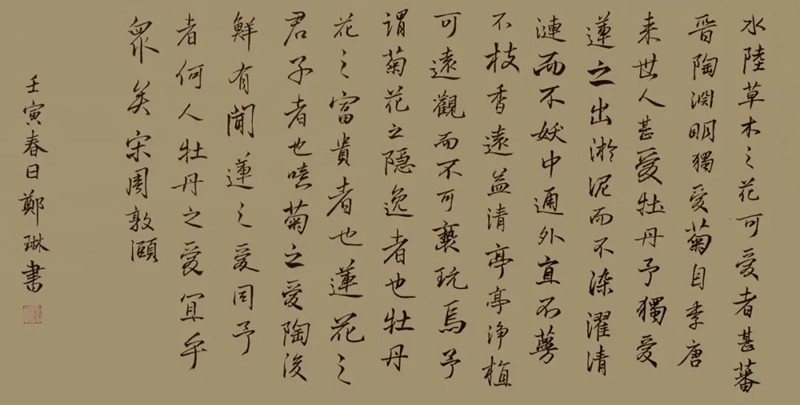 水陸草木之花可愛者甚蕃
晉陶淵明獨愛菊自李唐
来世人甚愛牡丹予獨愛
蓮之出淤泥而不染濯清
漣而不妖中通外直不蔓
不枝香遠益清亭亭浄植
可遠觀而不可褻玩焉予
謂菊花之隐逸者也牡丹
花之富貴者也蓮花之
君子者也噫菊之愛陶後
鮮有聞蓮之愛同予
者何人牡丹之愛宜乎
眾矣宋周敦頤
壬寅春日鄭琳書